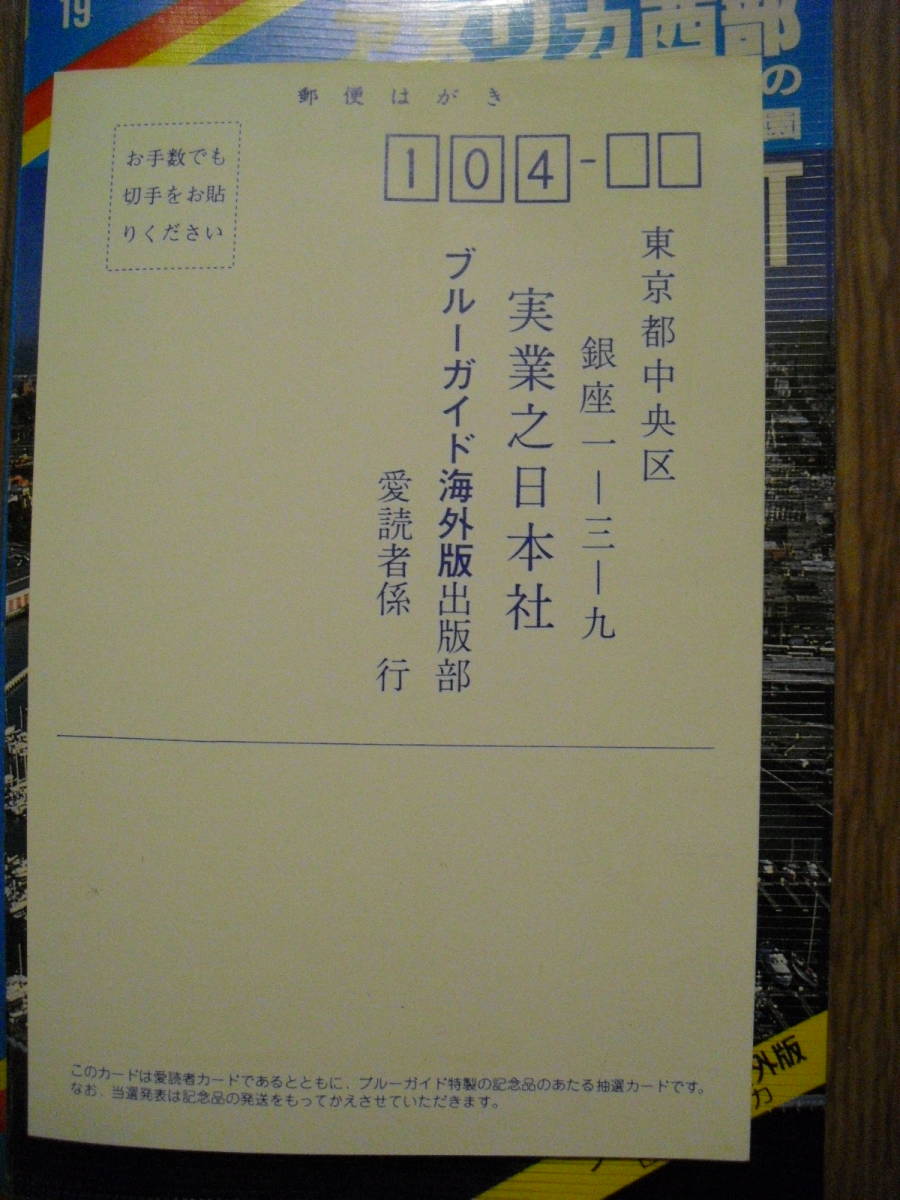 19
アメリカ西部
の
園
T
郵便はがき
お手数でも
切手をお貼
りください
104-
東京都中央区
銀座一ー三ー九
実業之日本社
ブルーガイド海外版出版部
愛読者係 行
このカードは愛読者カードであるとともに、ブルーガイド特製の記念品のあたる抽選カードです。
なお、当選発表は記念品の発送をもってかえさせていただきます。
外版